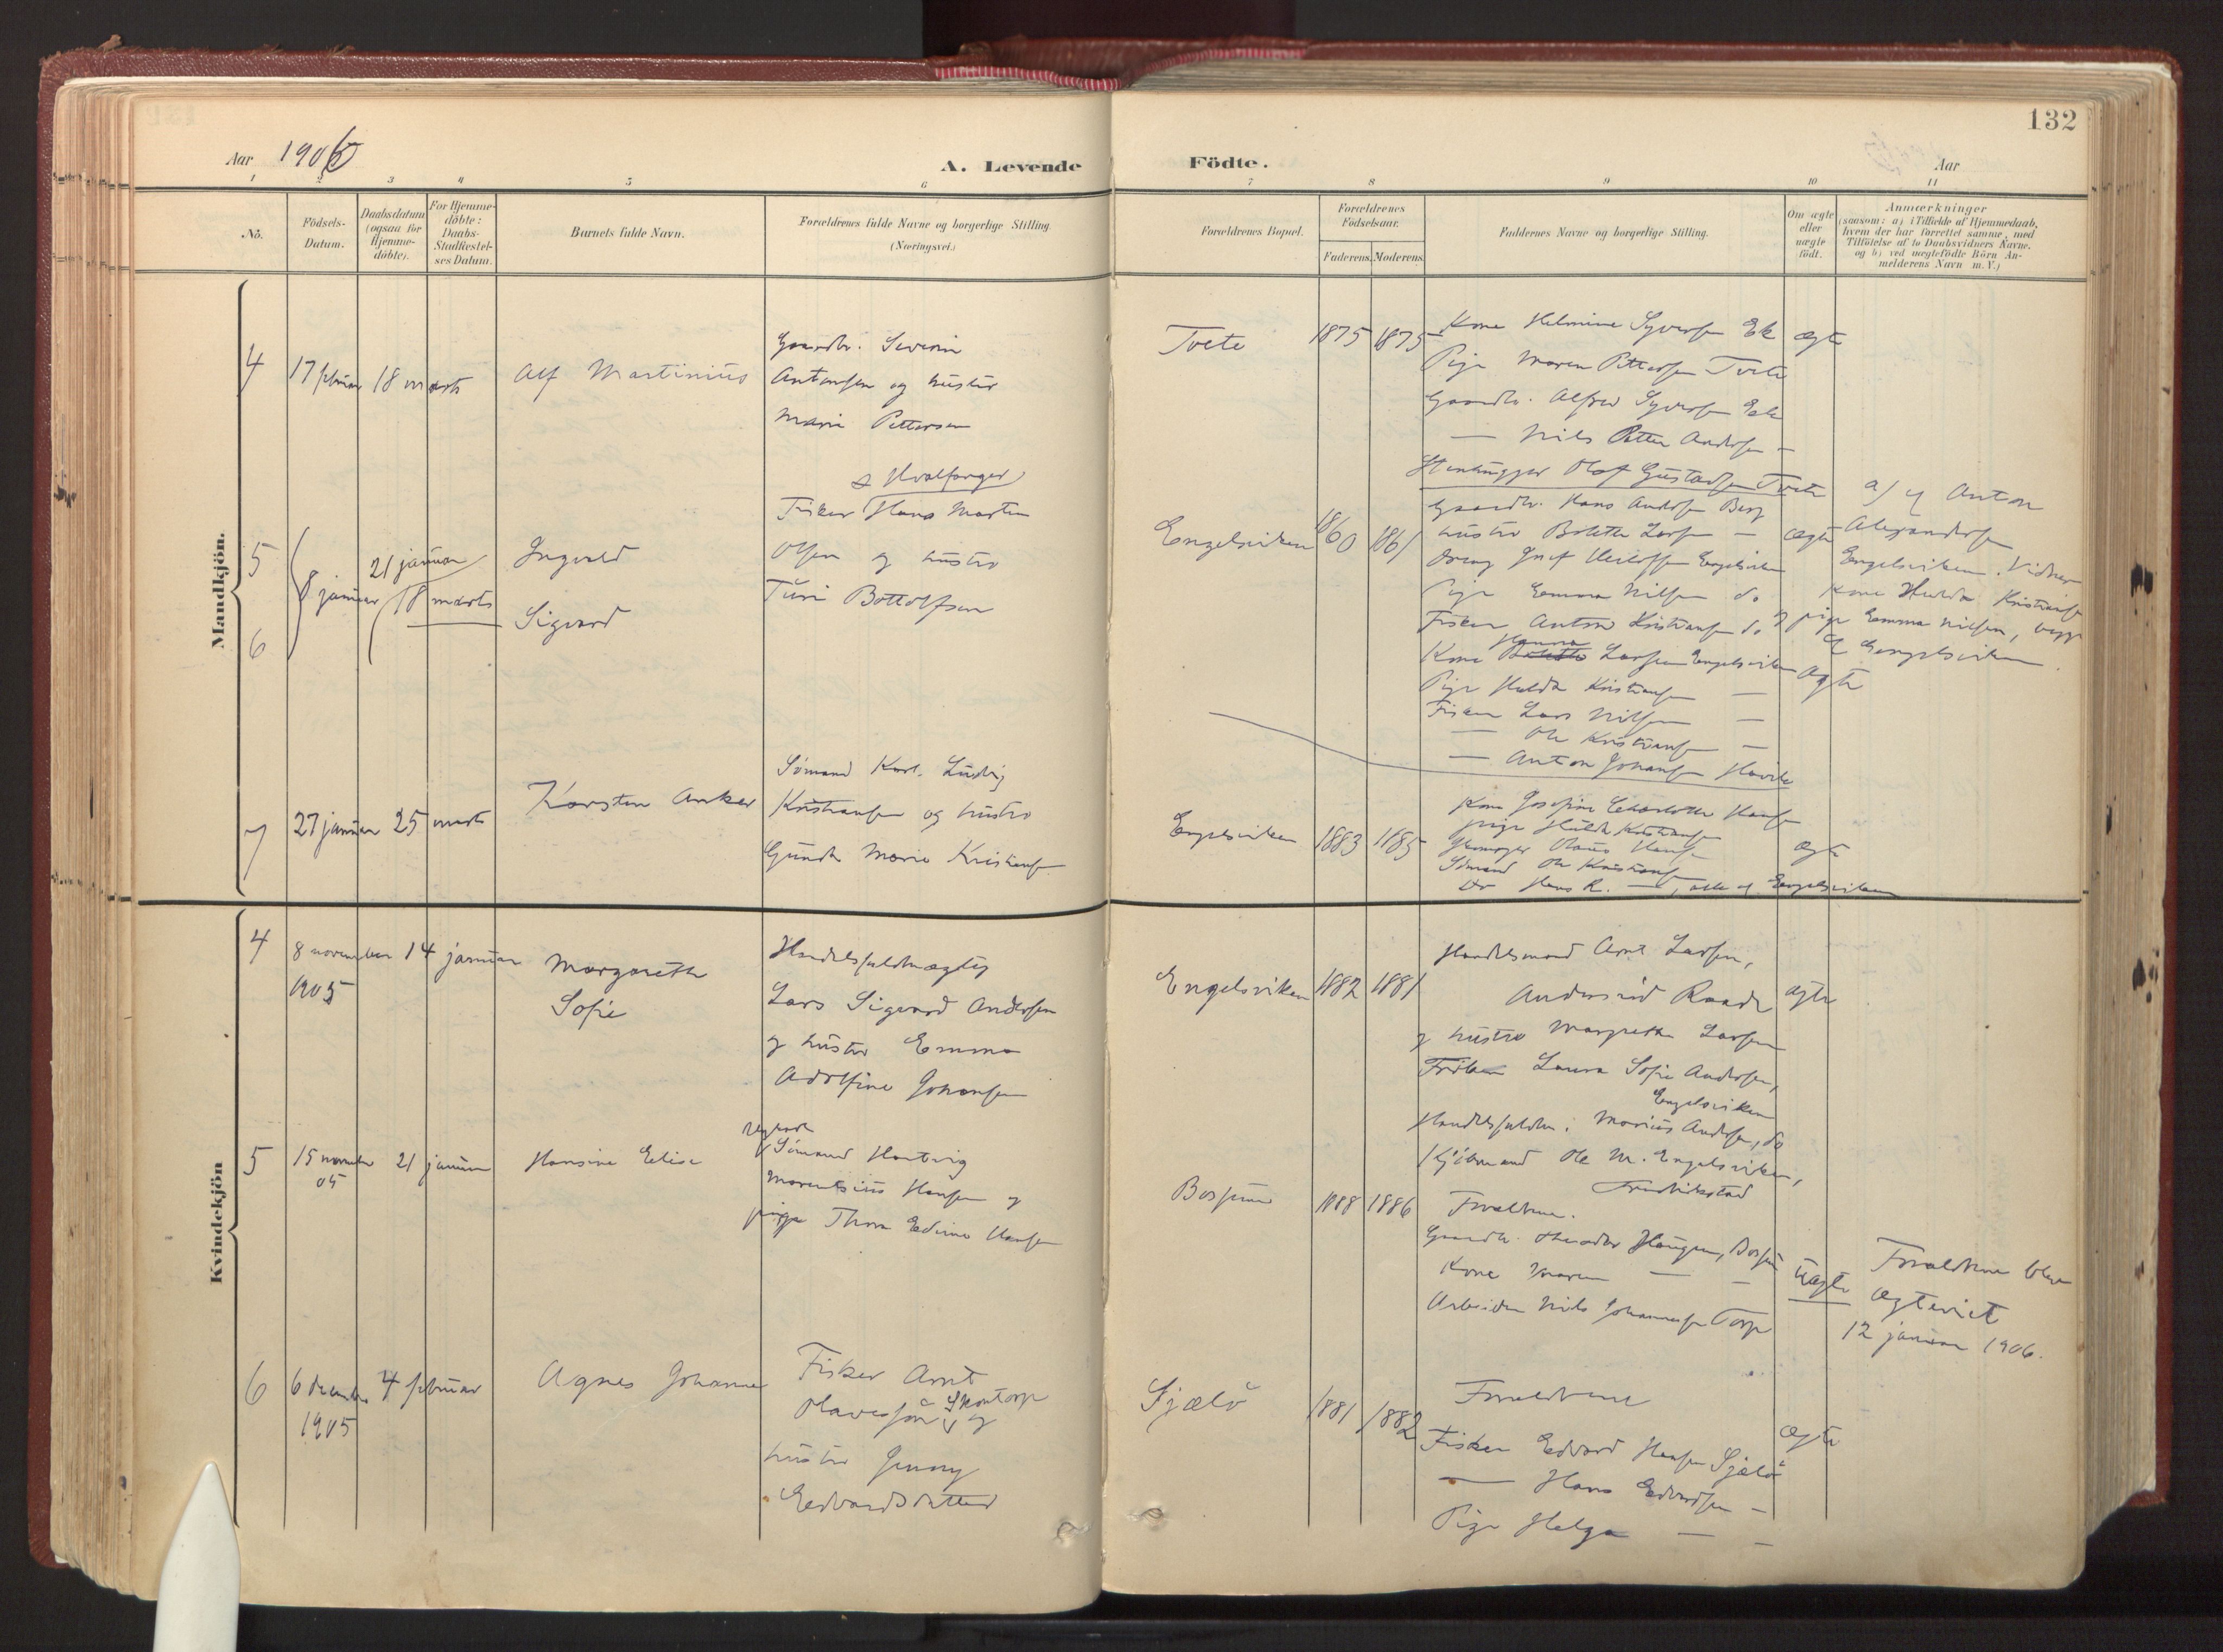 132
Aar 1906
A. Levende Födte.
Aar
1 2 3 4 5 6 7 8 9 10 11
Nô.
Födsels-
Datum.
Daabsdatum
(ogsaa for
Hjemme-
döbte).
For Hjemme-
döbte:
Daabs-
Stadfæstel-
ses Datum.
Barnets fulde Navn.
Forældrenes fulde Navne og borgerlige Stilling
(Næringsvei.)
Forældrenes Bopæl.
Forældrenes
Födselsaar.
Faderens. Moderens.
Faddernes Navne og borgerlige Stilling.
Om ægte
eller
uægte
födt.
Anmærkninger
(saasom: a) i Tilfælde af Hjemmedaab,
hvem der har forrettet samme, med
Tilföielse af to Daabsvidners Navne,
og b) ved uægtefödte Börn An-
melderens Navn m. V.)
Mandkjön.
4
17 februar
18 marts
Alf Martinius
Gaardbr. Severin
Antonsen og hustru
Marie Pettersen
Tvete
1875
1875
Kone Helmine Syversen Ek
Pige Maren Pettersen Tvete
Gaardbr. Alfred Syversen Ek
— Nils Petter Andersen —
Stenhugger Olaf Gustavsen Tvete
ægte
5
6
8 januar
21 januar
18 marts
Ingvald
Sigvard
& Hvalfanger
Fisker Hans Martin
Olsen og hustru
Turi Bottolfsen
Engelsviken
1860
1861
Gaardbr. Hans Andersen Berg
hustru Bolette Larsen —
Emma Nilsen do
Fisker Anton Kristiansen do
Kone Hanna Larsen Engelsviken
Pige Hulda Kristiansen —
Fisker Lars Nilsen —
— Ole Kristiansen —
— Anton Johansen
ægte
ægte
a/ af Anton
Alexandersen
Engelsviken. Vidner
Kone Hulda Kristiansen
og pige Emma Nilsen, begge
af Engelsviken.
7
27 januar
25 marts
Karsten Anker
Sömand Karl Ludvig
Kristiansen og hustru
Gunda Marie Kristiansen
Engelsviken
1883
1885
Kone Josefine Charlotte Hansen
pige Hulda Kristiansen
Skomager Olaus Hansen
Sömand Ole Kristiansen
do Hans R. —, alle af Engelsviken
ægte
Kvindekjön
4
8 november
1905
14 januar
Margarethe
Sofie
Handelsfuldmægtig
Lars Sigvard Andersen
og hustru Emma
Adolfine Johansen
Engelsviken
1882
1881
Handelsmand Arnt Larsen,
Raade
og hustru Margrethe Larsen
Fröken Laura Sofie Andersen,
Engelsviken
Handelsfuldm. Marius Andersen, do
Kjöbmand Ole M. Engelsviken,
Fredrikstad
ægte
5
15 november
05
21 januar
Hansine Elise
ugkarl
Sömand Hartvig
Marentsius Hansen og
pige Thora Edvine Hansen
1888
1886
Forældrene.
Gaardbr. Theodor Haugen,
Kone Maren — —
Arbeider Nils Johannesen Torp
Uægte
Forældrene blev
ægteviet
12 januar 1906.
6
6 december
1905
4 februar
Agnes Johanne
Fisker Arnt
Olavesön Skontorp
og
hustru Jenny
Edvardsdatter
Sjælö
1881
1882
Forældrene
Fisker Edvard Hansen Sjælö
— Hans Edvardsen —
Pige Helga — —
ægte